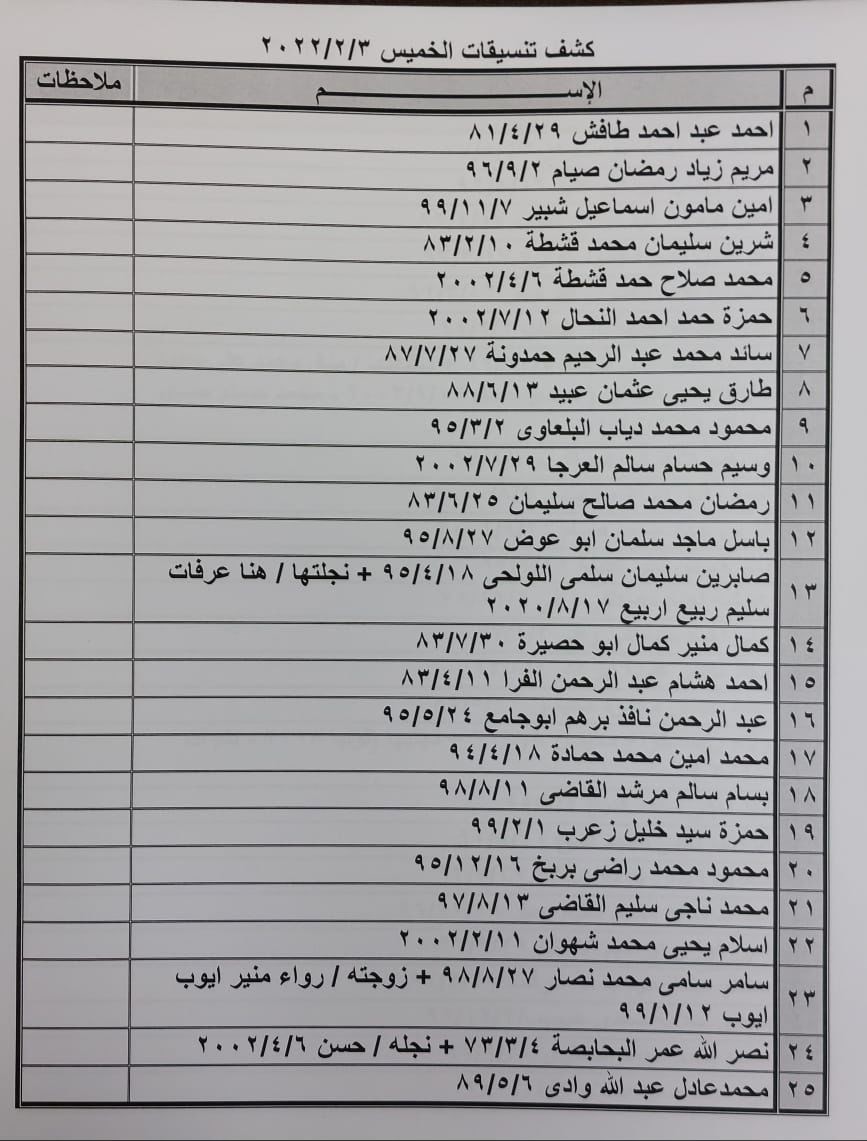 كشف تنسيقات الخميس ٢٠٢٢/٢/٣
م الإســـــــــــم ملاحظات
١ احمد عبد احمد طافش ٨١/٤/٢٩
٢ مريم زياد رمضان صيام ٩٦/٩/٢
٣ امين مامون اسماعيل شبير ٩٩/١١/٧
٤ شرين سليمان محمد قشطة ٨٣/٢/١٠
٥ محمد صلاح حمد قشطة ٢٠٠٢/٤/٦
٦ حمزة حمد احمد النحال ٢٠٠٢/٧/١٢
٧ سائد محمد عبد الرحيم حمدونة ٨٧/٧/٢٧
٨ طارق يحيى عثمان عبيد ٨٨/٦/١٣
٩ محمود محمد دياب البلعاوى ٩٥/٣/٢
١٠ وسيم حسام سالم العرجا ٢٠٠٢/٧/٢٩
١١ رمضان محمد صالح سليمان ٨٣/٦/٢٥
١٢ باسل ماجد سلمان ابو عوض ٩٥/٨/٢٧
١٣ صابرين سليمان سلمى اللولحى ٩٥/٤/١٨ + نجلتها / هنا عرفات
سليم ربيع اربيع ٢٠٢٠/٨/١٧
١٤ كمال منير كمال ابو حصيرة ٨٣/٧/٣٠
١٥ احمد هشام عبد الرحمن الفرا ٨٣/٤/١١
١٦ عبد الرحمن نافذ برهم ابوجامع ٩٥/٥/٢٤
١٧ محمد امين محمد حمادة ٩٤/٤/١٨
١٨ بسام سالم مرشد القاضى ٩٨/٨/١١
١٩ حمزة سيد خليل زعرب ٩٩/٢/١
٢٠ محمود محمد راضى بربخ ٩٥/١٢/١٦
٢١ محمد ناجى سليم القاضى ٩٧/٨/١٣
٢٢ اسلام يحيى محمد شهوان ٢٠٠٢/٢/١١
٢٣ سامر سامى محمد نصار ٩٨/٨/٢٧ + زوجته / رواء منير ايوب
ايوب ٩٩/١/١٢
٢٤ نصر الله عمر البحابصة ٧٣/٣/٤ + نجله / حسن ٢٠٠٢/٤/٦
٢٥ محمدعادل عبد الله وادى ٨٩/٥/٦